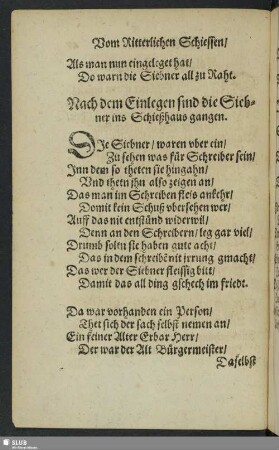 Vom Ritterlichen Schiessen/
Als man nun eingeleget hat/
Do warn die Siebner all zu Raht.
Nach dem Einlegen sind die Sieb-
ner ins Schießhaus gangen.
DJe Siebner/ waren vber ein/
Zu sehen was für Schreiber sein/
Jnn dem so theten sie hingahn/
Vnd thetn jhn also zeigen an/
Das man im Schreiben fleis ankehr/
Domit kein Schuß vbersehen wer/
Auff das nit entstünd widerwil/
Denn an den Schreibern/ leg gar viel/
Drumb soltn sie haben gute acht/
Das in dem schreibē nit jrrung gmacht/
Das wer der Siebner fleissig bitt/
Damit das all ding gschech im friedt.
Da war vorhanden ein Person/
Thet sich der sach selbst nemen an/
Ein feiner Alter Erbar Herr/
Der war der Alt Bürgermeister/
Daselbst
SLUB